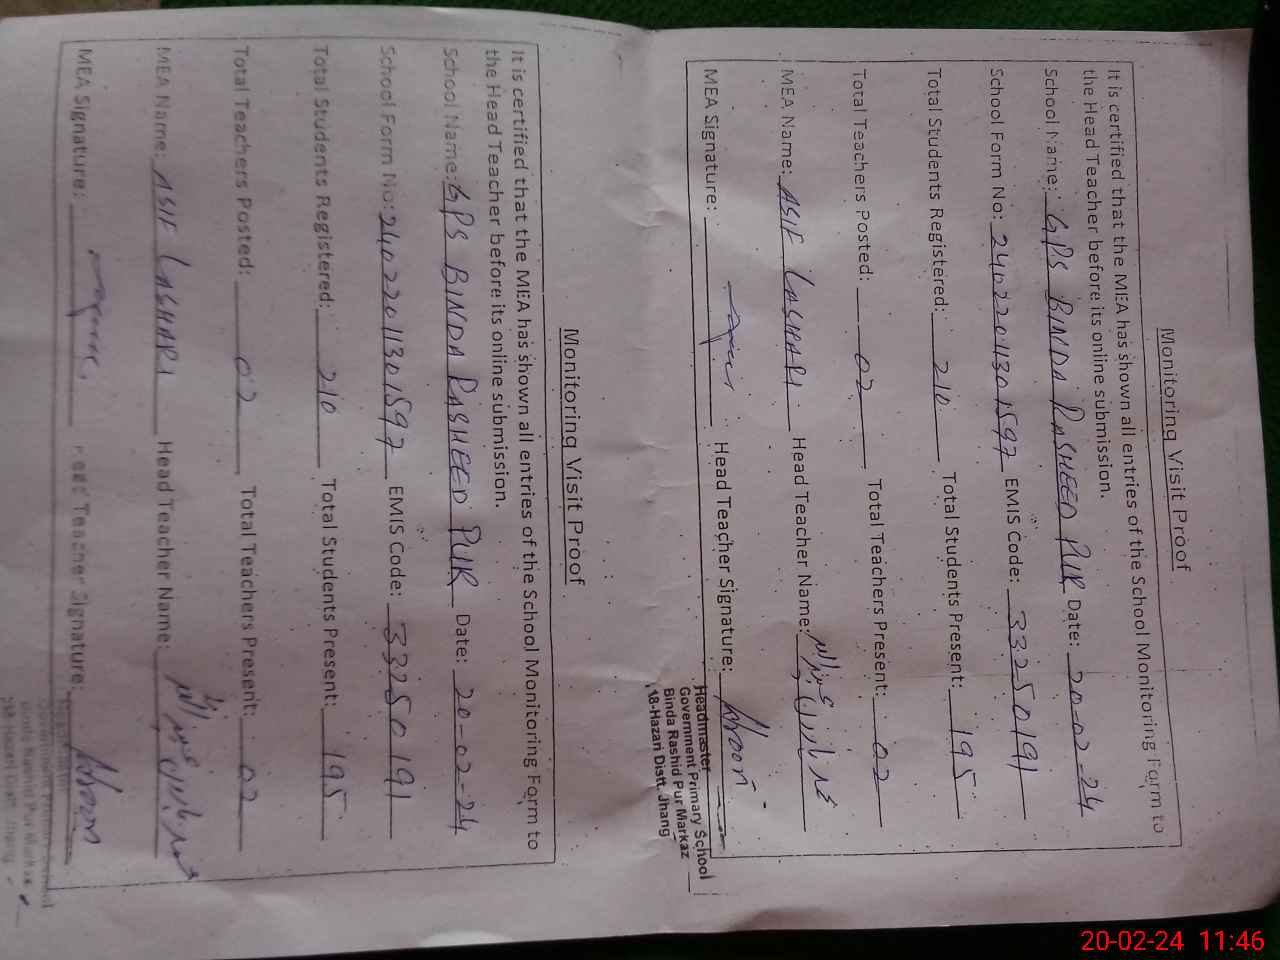 Monitoring Visit Proof
It is certified that the MEA has shown all entries of the School Monitoring Form to
the Head Teacher before its online submission.
School Name: GPS BINDA RASHEED PUR Date: 20-02-24
School Form No: 24022011301597 EMIS Code: 33250191
Total Students Registered: 210 Total Students Present: 195
Total Teachers Posted: 02 Total Teachers Present: 02
MEA Name: ASIF LASHARI Head Teacher Name:
MEA Signature: Head Teacher Signature:
Headmaster
Government Primary School
Binda Rashid Pur Markaz
18-Hazari Distt. Jhang
Monitoring Visit Proof
It is certified that the MEA has shown all entries of the School Monitoring Form to
the Head Teacher before its online submission.
School Name: GPS BINDA RASHEED PUR Date: 20-02-24
School Form No: 24022011301597 EMIS Code: 33250191
Total Students Registered: 210 Total Students Present: 195
Total Teachers Posted: 02 Total Teachers Present: 02
MEA Name: ASIF LASHARI Head Teacher Name:
MEA Signature: Head Teacher Signature:
20-02-24 11:46